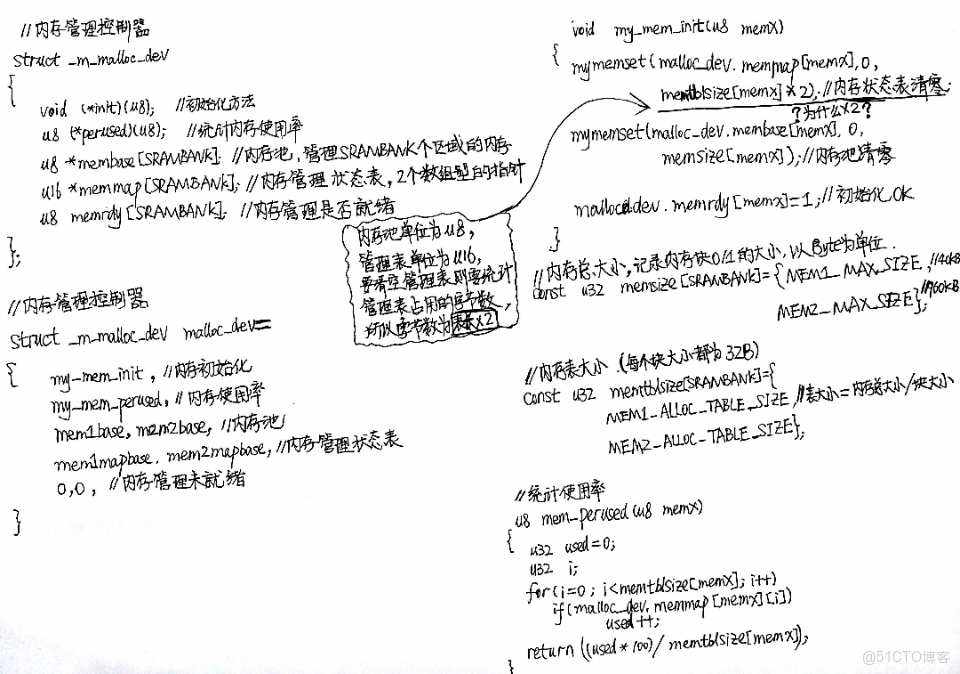 //内存管理控制器
struct _m_malloc_dev
{
void (*init)(u8); //初始化方法
u8 (*perused)(u8); //统计内存使用率
u8 *membase[SRAMBANK]; //内存池，管理SRAMBANK个区域的内存
u16 *memmap[SRAMBANK]; //内存管理状态表，2个数组型的指针
u8 memrdy[SRAMBANK]; //内存管理是否就绪
};
//内存管理控制器
struct _m_malloc_dev malloc_dev=
{
my_mem_init, //内存初始化
my_mem_perused, //内存使用率
mem1base, mem2base, //内存池
mem1mapbase, mem2mapbase, //内存管理状态表
0,0, //内存管理未就绪
}
内存池单位为u8,
管理表单位为u16,
要清空管理表则要统计
管理表占用的字节数,
所以字节数为表长x2
void my_mem_init(u8 memx)
{
mymemset(malloc_dev.memmap[memx],0,
memtblsize[memx]*2); //内存状态表清零;
?为什么x2?
mymemset(malloc_dev.membase[memx], 0,
memsize[memx]); //内存池清零
malloc_dev.memrdy[memx]=1; //初始化OK
}
//内存总大小,记录内存块0/1的大小,以Byte为单位.
const u32 memsize[SRAMBANK]={MEM1_MAX_SIZE, //40kB
MEM2_MAX_SIZE}; //960kB
//内存表大小.(每个块大小都为32B)
const u32 memtblsize[SRAMBANK]={
MEM1_ALLOC_TABLE_SIZE, //表大小=内存总大小/块大小
MEM2_ALLOC_TABLE_SIZE};
//统计使用率
u8 mem_perused(u8 memx)
{
u32 used=0;
u32 i;
for(i=0; i<memtblsize[memx]; i++)
if(malloc_dev.memmap[memx][i])
used++;
return ((used*100)/memtblsize[memx]);
}
@51CTO博客